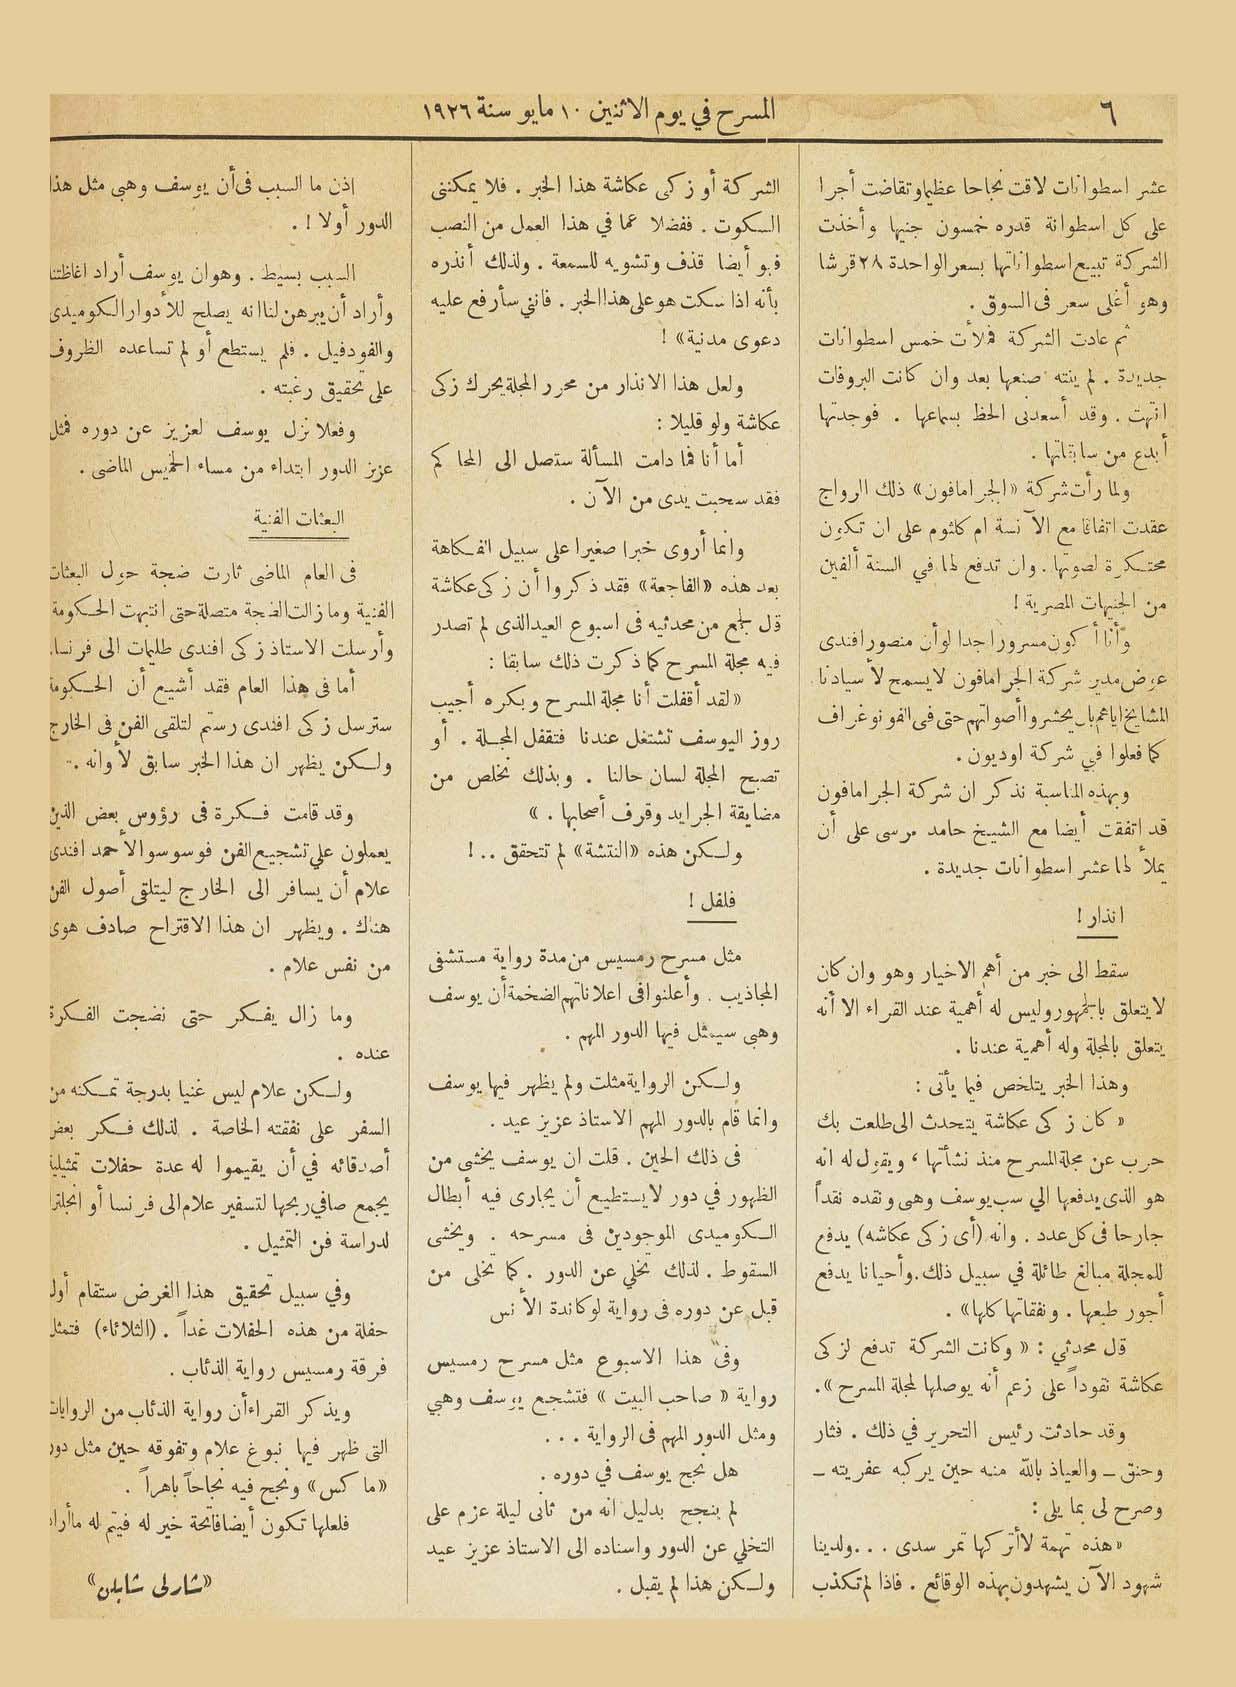 ٦
المسرح في يوم الاثنين ١٠ مايو سنة ١٩٢٦
عشر اسطوانات لاقت نجاحا عظيما وتقاضت أجرا
على كل اسطوانة قدره خمسون جنيها وأخذت
الشركة تبيع اسطواناتها بسعر الواحدة ٢٨ قرشا
وهو أغلى سعر فى السوق .
ثم عادت الشركة فملأت خمس اسطوانات
جديدة . لم ينته صنعها بعد وان كانت البروفات
انتهت . وقد أسعدنى الحظ بسماعها . فوجدتها
أبدع من سابقاتها .
ولما رأت شركة «الجرامافون» ذلك الرواج
عقدت اتفاقا مع الآنسة ام كلثوم على ان تكون
محتكرة لصوتها . وان تدفع لها في السنة ألفين
من الجنيهات المصرية !
وأنا أكون مسرورا جدا لو أن منصور افندى
عوض مدير شركة الجرامافون لا يسمح لأسيادنا
المشايخ اياهم بان يحشروا أصواتهم حتى فى الفونوغراف
كما فعلوا في شركة اوديون .
وبهذه المناسبة نذكر ان شركة الجرامافون
قد اتفقت أيضا مع الشيخ حامد مرسى على أن
يملأ لها عشر اسطوانات جديدة .
انذار !
سقط الى خبر من أهم الاخبار وهو وان كان
لا يتعلق بالجمهور وليس له أهمية عند القراء الا أنه
يتعلق بالمجلة وله أهمية عندنا .
وهذا الخبر يتلخص فيما يأتى :
« كان زكى عكاشة يتحدث الى طلعت بك
حرب عن مجلة المسرح منذ نشأتها ، ويقول له انه
هو الذى يدفعها الي سب يوسف وهبى ونقده نقداً
جارحا فى كل عدد . وانه (أى زكى عكاشه) يدفع
للمجلة مبالغ طائلة في سبيل ذلك . وأحيانا يدفع
أجور طبعها . ونفقاتها كلها» .
قل محدثي : « وكانت الشركة تدفع لزكى
عكاشة نقوداً على زعم أنه يوصلها لمجلة المسرح » .
وقد حادثت رئيس التحرير في ذلك . فثار
وحنق ـ والعياذ بالله منه حين يركبه عفريته ـ
وصرح لى بما يلى :
«هذه تهمة لا أتركها تمر سدى . . . ولدينا
شهود الآن يشهدون بهذه الوقائع . فاذا لم تكذب
الشركة أو زكى عكاشة هذا الخبر . فلا يمكننى
السكوت . ففضلا عما في هذا العمل من النصب
فهو أيضا قذف وتشويه للسمعة . ولذلك أنذره
بأنه اذا سكت هو على هذا الخبر . فانني سأرفع عليه
دعوى مدنية» !
ولعل هذا الانذار من محرر المجلة يحرك زكى
عكاشة ولو قليلا :
أما أنا فما دامت المسألة ستصل الى المحاكم
فقد سحبت يدى من الآن .
وانما أروى خبرا صغيرا على سبيل الفكاهة
بعد هذه «الفاجعة» فقد ذكروا أن زكى عكاشة
قل لجمع من محدثيه فى اسبوع العيد الذى لم تصدر
فيه مجلة المسرح كما ذكرت ذلك سابقا :
« لقد أقفلت أنا مجلة المسرح وبكره أجيب
روز اليوسف تشتغل عندنا فتقفل المجلة . أو
تصبح المجلة لسان حالنا . وبذلك نخلص من
مضايقة الجرايد وقرف أصحابها . »
ولكن هذه «النتشة» لم تتحقق . . !
فلفل !
مثل مسرح رمسيس من مدة رواية مستشفى
المجاذيب . وأعلنوا فى اعلاناتهم الضخمة أن يوسف
وهبى سيمثل فيها الدور المهم .
ولكن الرواية مثلت ولم يظهر فيها يوسف
وانما قام بالدور المهم الاستاذ عزيز عيد .
فى ذلك الحين . قلت ان يوسف يخشى من
الظهور في دور لا يستطيع أن يجارى فيه أبطال
الكوميدى الموجودين فى مسرحه . ويخشى
السقوط . لذلك تخلي عن الدور . كما تخلى من
قبل عن دوره فى رواية لوكاندة الأنس
وفى هذا الاسبوع مثل مسرح رمسيس
رواية « صاحب البيت » فتشجع يوسف وهبي
ومثل الدور المهم فى الرواية . . .
هل نجح يوسف في دوره .
لم ينجح بدليل انه من ثانى ليلة عزم على
التخلي عن الدور واسناده الى الاستاذ عزيز عيد
ولكن هذا لم يقبل .
اذن ما السبب فى أن يوسف وهبى مثل هذا
الدور أولا ! .
السبب بسيط . وهو ان يوسف أراد اغاظتنا
وأراد أن يبرهن لنا انه يصلح للأدوار الكوميدى
والفودفيل . فلم يستطع أو لم تساعده الظروف
على تحقيق رغبته .
وفعلا نزل يوسف لعزيز عن دوره فمثل
عزيز الدور ابتداء من مساء الخميس الماضى .
البعثات الفنية
فى العام الماضى ثارت ضجة حول البعثات
الفنية وما زالت الضجة متصلة حتى انتبهت الحكومة
وأرسلت الاستاذ زكى افندى طليمات الى فرنسا .
أما فى هذا العام فقد أشيع أن الحكومة
سترسل زكى افندى رستم لتلقى الفن فى الخارج
ولكن يظهر ان هذا الخبر سابق لأوانه .
وقد قامت فكرة فى رؤوس بعض الذين
يعملون علي تشجيع الفن فوسوسوا لأحمد افندى
علام أن يسافر الى الخارج ليتلقى أصول الفن
هناك . ويظهر ان هذا الاقتراح صادف هوى
من نفس علام .
وما زال يفكر حتى نضجت الفكرة
عنده .
ولكن علام ليس غنيا بدرجة تمكنه من
السفر على نفقته الخاصة . لذلك فكر بعض
أصدقائه في أن يقيموا له عدة حفلات تمثيلية
يجمع صافي ربحها لتسفير علام الى فرنسا أو انجلترا
لدراسة فن التمثيل .
وفي سبيل تحقيق هذا الغرض ستقام أول
حفلة من هذه الحفلات غداً . (الثلاثاء) فتمثل
فرقة رمسيس رواية الذئاب .
ويذكر القراء أن رواية الذئاب من الروايات
التى ظهر فيها نبوغ علام وتفوقه حين مثل دور
«ماكس» ونجح فيه نجاحاً باهراً .
فلعلها تكون أيضا فاتحة خير له فيتم له ما أراد
«شارلى شابلن»